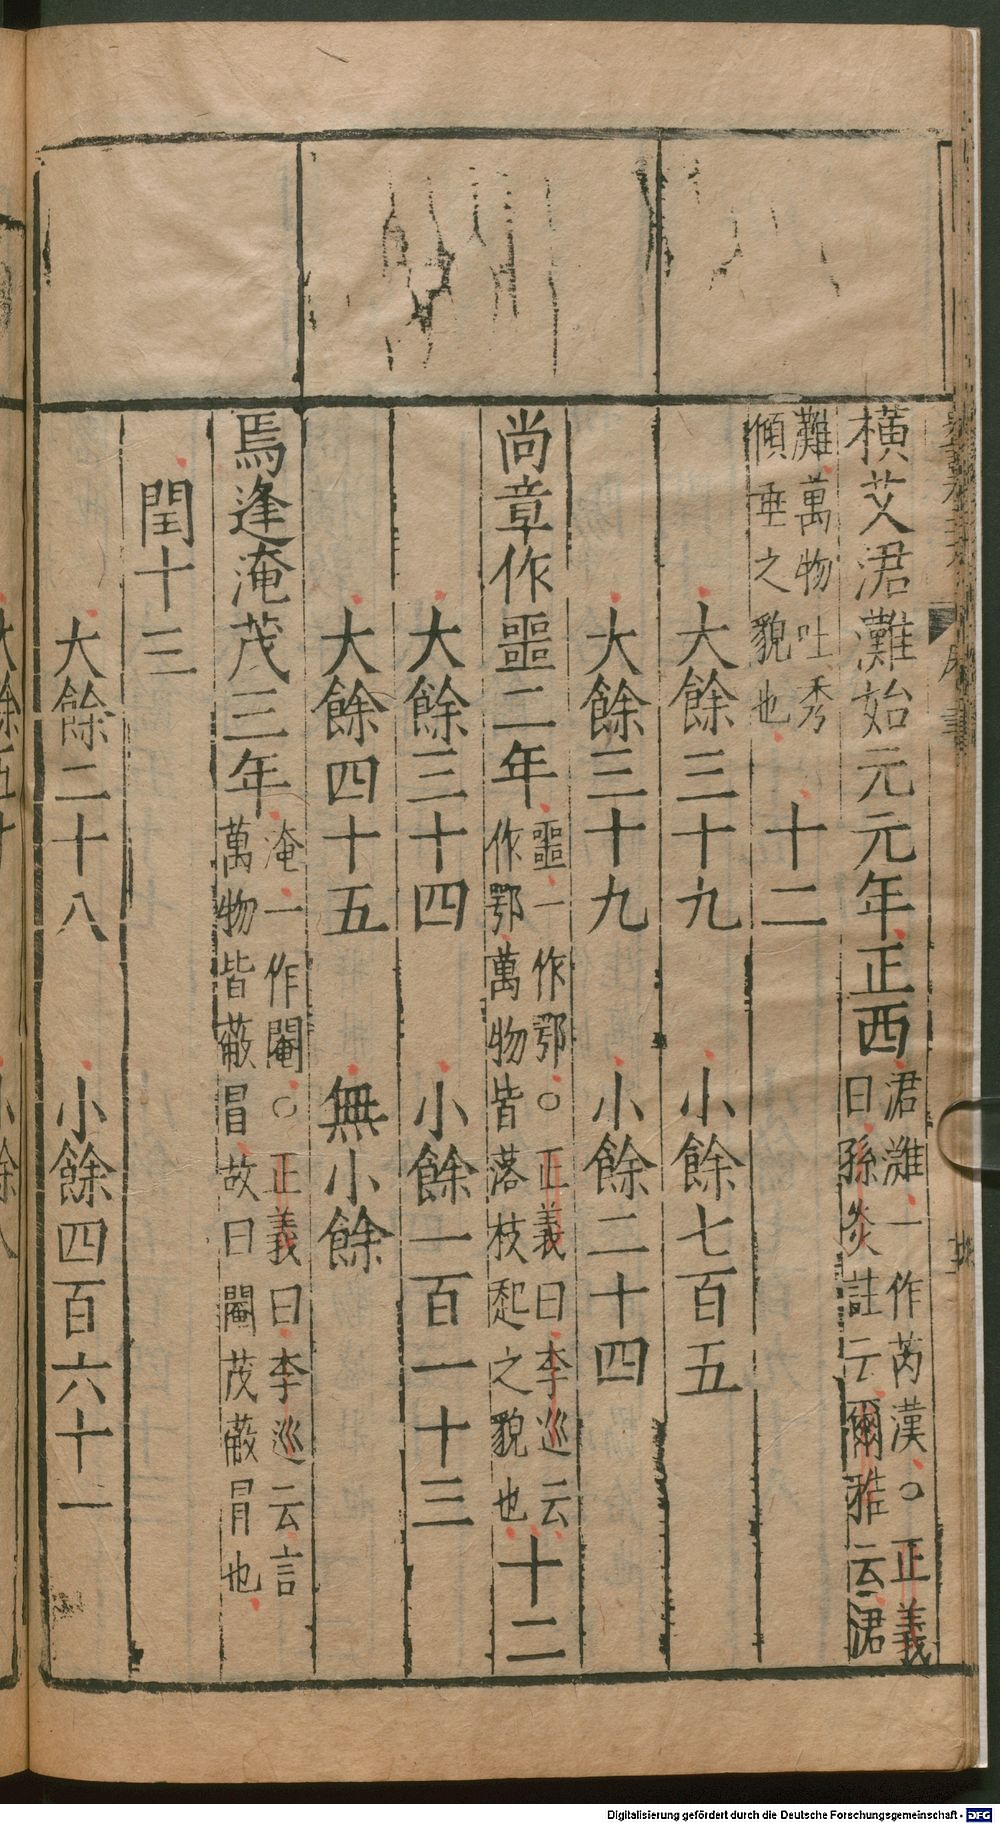 橫艾涒灘始元元年正西涒灘一作芮漢○正義
曰孫炎註云爾雅云涒
灘萬物吐秀
傾垂之貌也十二
大餘三十九 小餘七百五
大餘三十九 小餘二十四
尚章作噩二年噩一作鄂○正義曰李巡云
作鄂萬物皆落枝起之貌也十二
大餘三十四 小餘一百一十三
大餘四十五 無小餘
焉逢淹茂三年淹一作閹○正義曰李巡云言
萬物皆蔽冒故曰閹茂蔽冒也
閏十三
大餘二十八 小餘四百六十一
Digitalisierung gefördert durch die Deutsche Forschungsgemeinschaft - DFG